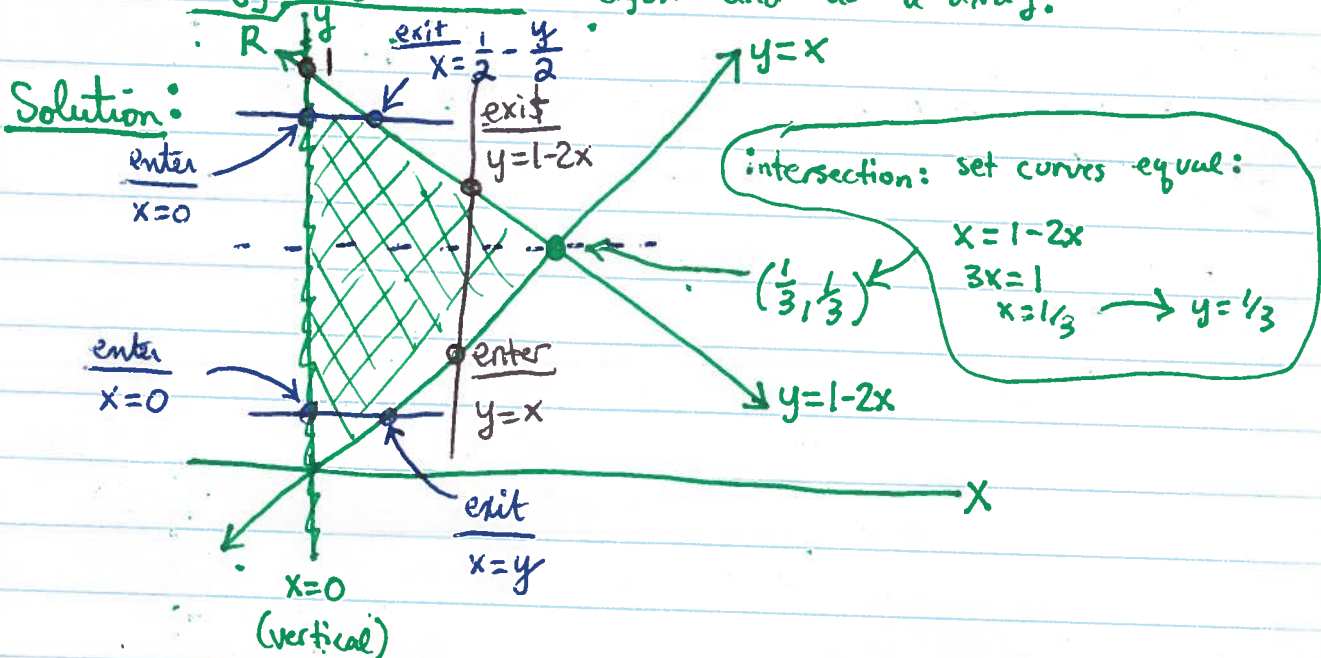 and do a dxdy.
y
R
1
exit
x = 1/2 - y/2
y=x
Solution:
exit
y=1-2x
enter
x=0
intersection: set curves equal:
x=1-2x
3x=1
x=1/3 → y=1/3
(1/3, 1/3)
enter
x=0
enter
y=x
y=1-2x
X
exit
x=y
x=0
(vertical)